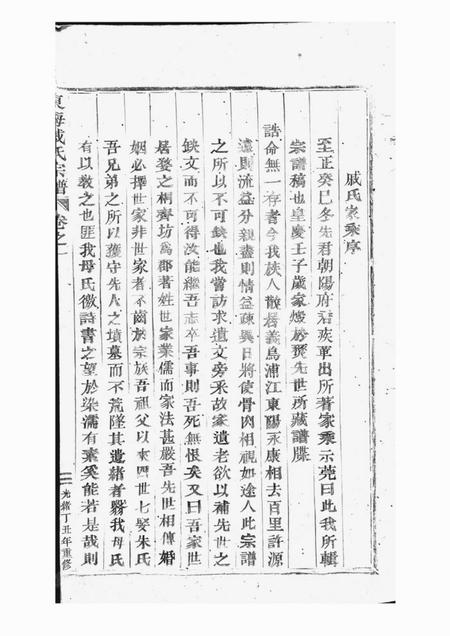 戚氏家乘序
至正癸巳冬先君朝陽府君疾革出所著家乘示菀曰此我所輯
宗譜稿也皇慶壬子歲家燬於燹先世所藏譜牒
誥命無一存者今我族人散居義烏浦江東陽永康相去百里許源
遠則流益分親盡則情益疎異日將使骨肉相視如途人此宗譜
之所以不可缺也我嘗訪求遺文旁采故家遺老欲以補先世之
缺文而不可得汝能繼吾志卒吾事則吾死無恨矣又曰吾家世
居婺之桐齊坊爲郡著姓世家業儒而家法甚嚴吾先世相傳婚
姻必擇世家非世家者不齒於宗族吾祖父以來四世七娶朱氏
吾兄弟之所以獲守先人之墳墓而不荒墜其遺緒者繄我母氏
有以教之也匪我母氏徽詩書之望於染濡有素奚能若是哉則
東海戚氏宗譜 卷之一
一 光緒丁丑年重修